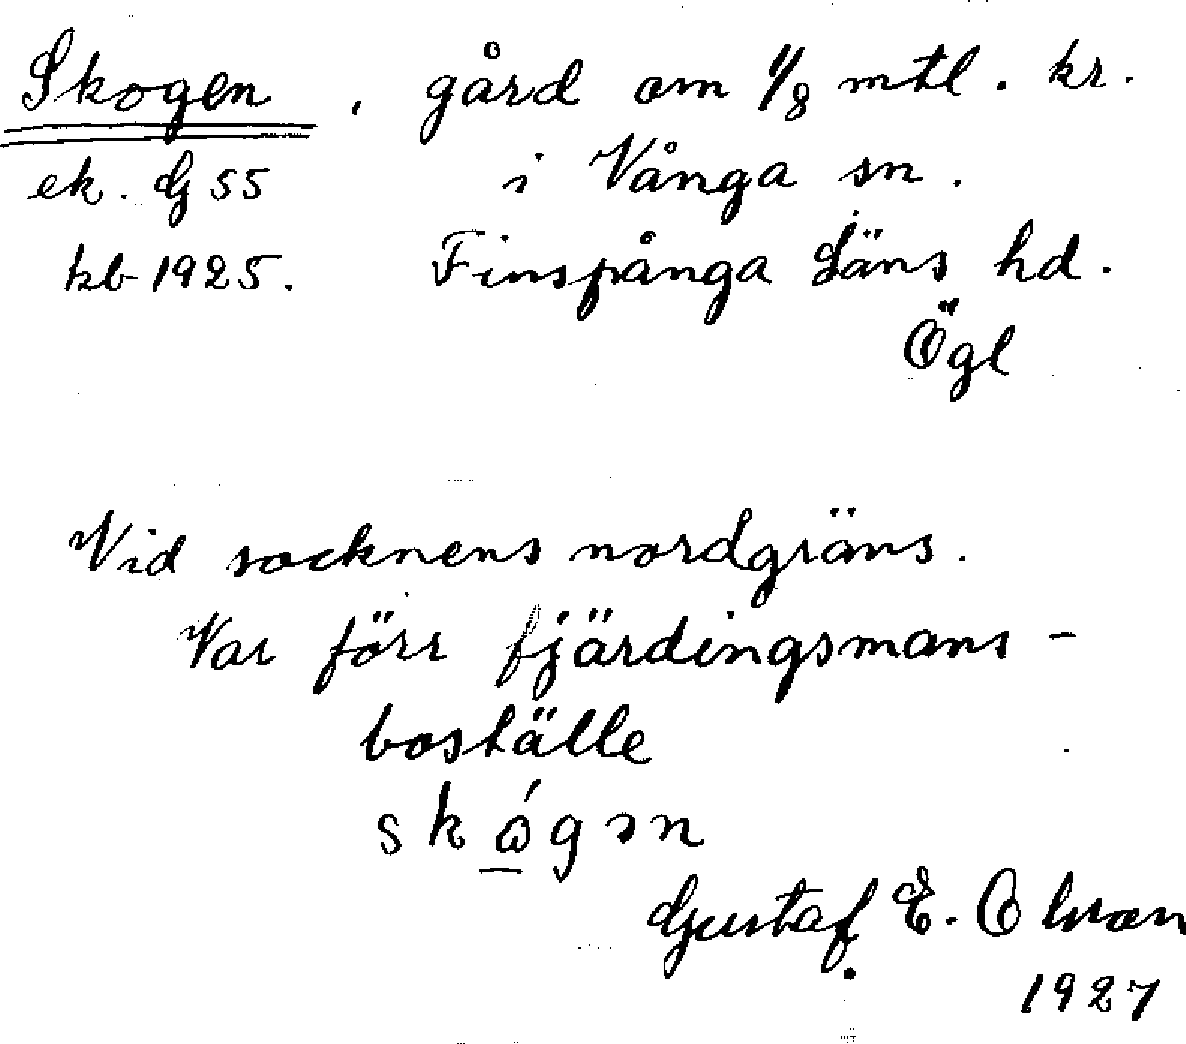 Skogen, gård om 1/8 mtl. kr.
ek. G 55 i Vånga sn.
kb 1925. Finspånga Läns hd.
Ögl
Vid socknens nordgräns.
Var förr fjärdingsmans-
boställe
skógən
Gustaf E. Olson
1927